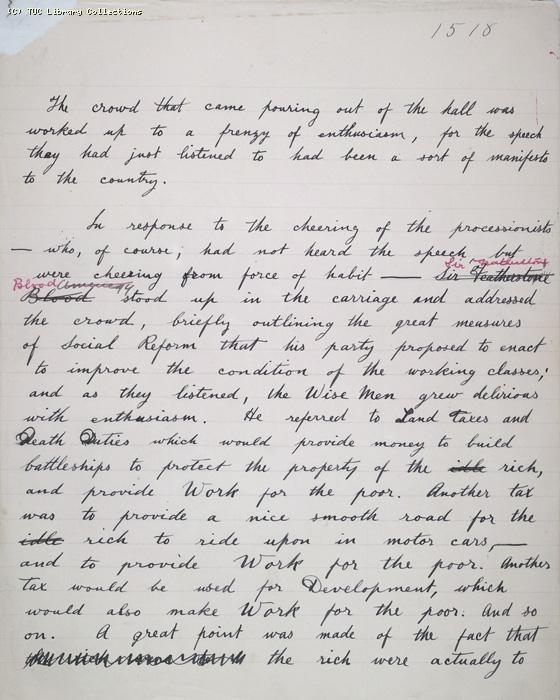 (C) TUC Library Collections
1518
The crowd that came pouring out of the hall was
worked up to a frenzy of enthusiasm, for the speech
they had just listened to had been a sort of manifesto
to the country.
In response to the cheering of the processionists
— who, of course, had not heard the speech, but
Sir Featherstone
were cheering from force of habit — Sir Featherstone
Blood
Blood stood up in the carriage and addressed
the crowd, briefly outlining the great measures
of Social Reform that his party proposed to enact
to improve the condition of the working classes;
and as they listened, the Wise Men grew delirious
with enthusiasm. He referred to Land Taxes and
Death Duties which would provide money to build
battleships to protect the property of the idle rich,
and provide Work for the poor. Another tax
was to provide a nice smooth road for the
idle rich to ride upon in motor cars, —
and to provide Work for the poor. Another
tax would be used for Development, which
would also make Work for the poor. And so
on. A great point was made of the fact that
the rich were actually to